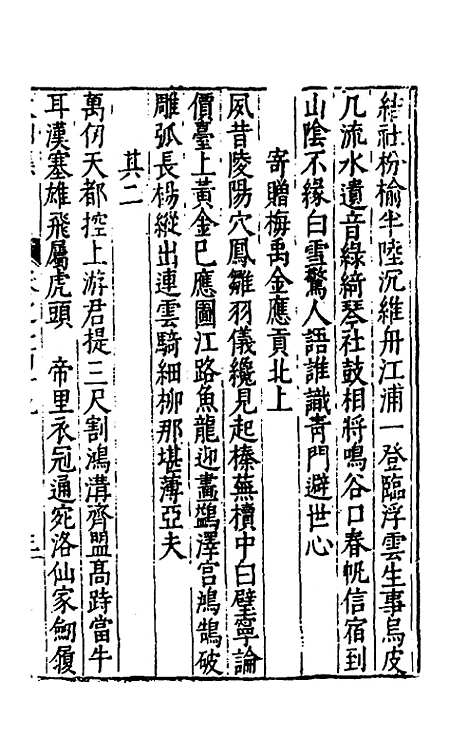 結社枌榆半陸沉維舟江浦一登臨浮雲生事烏皮
几流水遺音綠綺琴社鼓相將鳴谷口春帆信宿到
山陰不緣白雪驚人語誰識靑門避世心
寄贈梅禹金應貢北上
夙昔陵陽穴鳳雛羽儀纔見起榛蕪櫝中白璧寧論
價臺上黃金已應圖江路魚龍迎畫鷁澤宮鴻鵠破
雕弧長楊縱出連雲騎細柳那堪薄亞夫
其二
萬仞天都控上游君提三尺割鴻溝齊盟高跱當牛
耳漢塞雄飛屬虎頭　帝里衣冠通宛洛仙家劒履